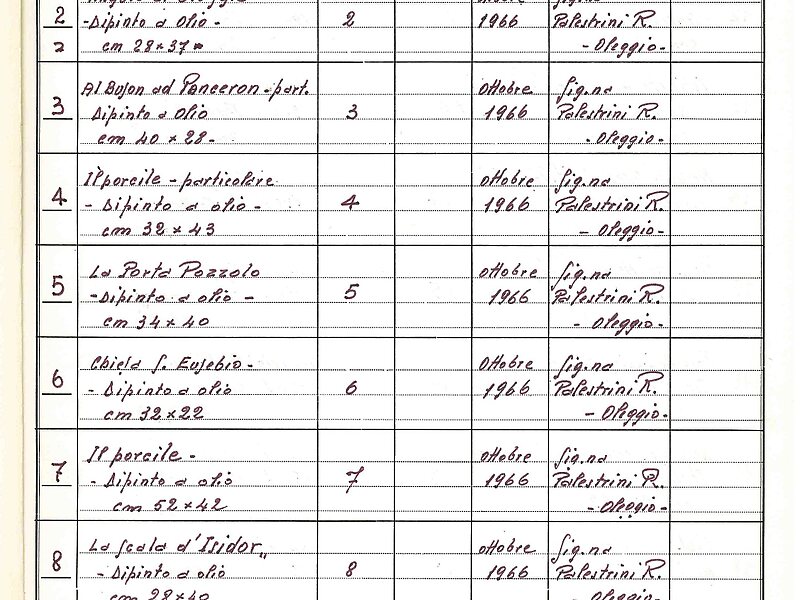 2
-Dipinto a olio- 2 1966 Palestrini R.
2 cm 28×37 - Oleggio-
Al Bojon ad Panceron-part. ottobre sig.na
3 Dipinto a olio 3 1966 Palestrini R.
cm 40×28- - Oleggio-
Il porcile - particolare ottobre sig.na
4 - Dipinto a olio - 4 1966 Palestrini R.
cm 32×43 - Oleggio-
La Porta Pozzolo ottobre sig.na
5 -Dipinto a olio - 5 1966 Palestrini R.
cm 34×40 - Oleggio-
Chiesa S. Eusebio- ottobre sig.na
6 - Dipinto a olio 6 1966 Palestrini R.
cm 32×22 - Oleggio-
Il porcile - ottobre sig.na
7 - Dipinto a olio 7 1966 Palestrini R.
cm 52×42 - Oleggio-
La scala d'Isidor„ ottobre sig.na
8 - Dipinto a olio 8 1966 Palestrini R.
cm 28×40 - Oleggio-